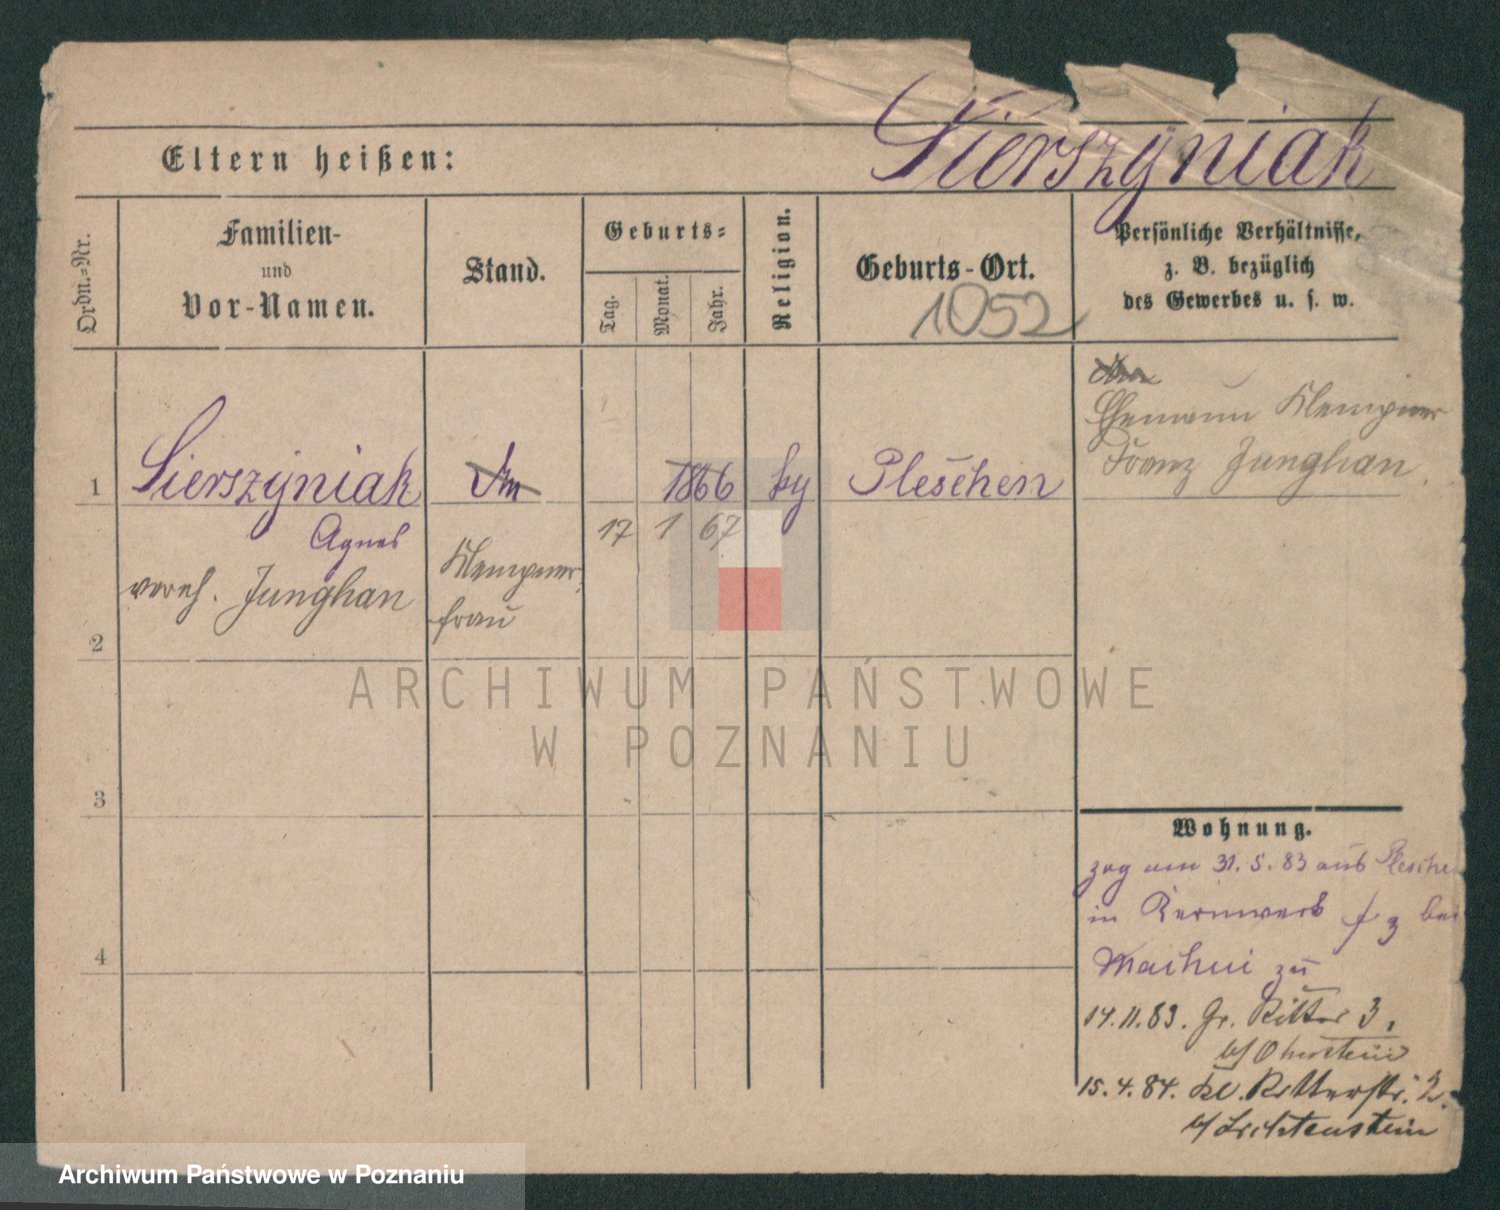 Sierszyniak
Eltern heißen:
Ordn.-Nr.
Familien-
und
Vor-Namen.
Stand.
Geburts-
Tag.
Monat.
Jahr.
Religion.
Geburts-Ort.
1052
Persönliche Verhältnisse,
z. B. bezüglich
des Gewerbes u. s. w.
Ehemann Klempner
Franz Junghan
1 Sierszyniak 1866 Pleschen
Agnes 17 1 67
vereh. Junghan Klempner
frau
2
3
4
ARCHIWUM PAŃSTWOWE
W POZNANIU
Wohnung.
zog am 31.5.83 aus Plesche
in Bernwerk 3 bei
zu
14.11.83. Gr. Ritter 3,
b/ Ohnstein
15.4.84. Kl. Ritterstr. 2.
b/ Lichtenstein
Archiwum Państwowe w Poznaniu